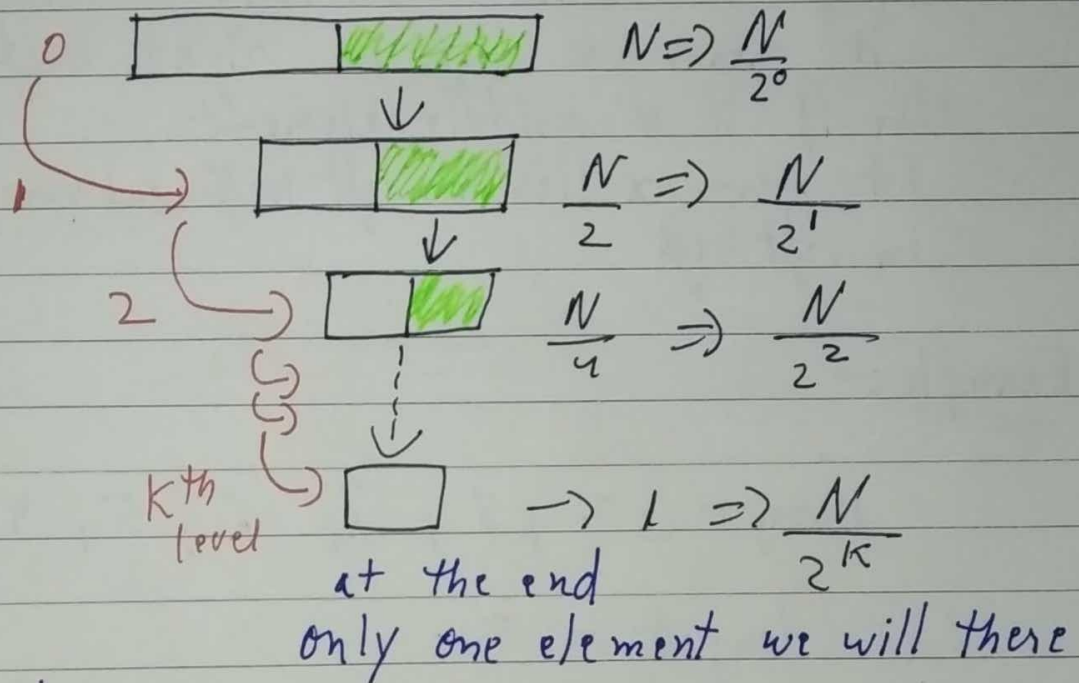 0 N => N/2⁰
1 N/2 => N/2¹
2 N/4 => N/2²
Kth level -> 1 => N/2ᴷ
at the end
only one element we will there